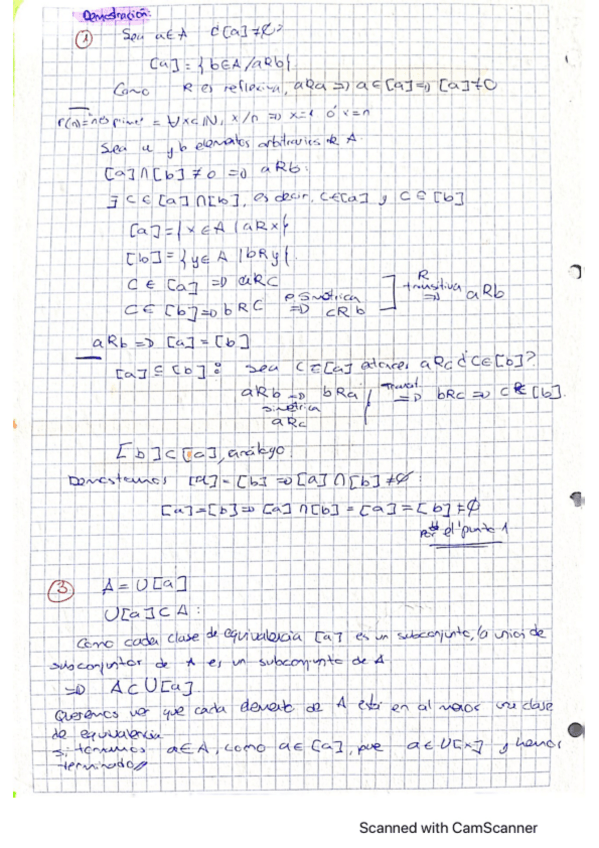 Demostración:
① Sea a∈A ¿[a]≠∅?
[a]={b∈A/aRb}
Como R es reflexiva, aRa ⇒ a∈[a] ⇒ [a]≠0
= ∀x∈ℕ, x/n ⇒ x=1 ó x=n
Sea a y b elementos arbitrarios de A
[a]∩[b]≠0 ⇒ aRb:
∃ c∈[a]∩[b], es decir, c∈[a] y c∈[b]
[a]={x∈A/aRx}
[b]={y∈A/bRy}
c∈[a] ⇒ aRc
c∈[b] ⇒ bRc es simétrica ⇒ cRb ] R transitiva ⇒ aRb
aRb ⇒ [a]=[b]
[a]⊆[b]: sea c∈[a] entonces aRc ¿c∈[b]?
aRb ⇒ simétrica bRa
aRc } Transit. ⇒ bRc ⇒ c∈[b].
[b]⊂[a], análogo.
Demostremos [a]=[b] ⇒ [a]∩[b]≠∅:
[a]=[b] ⇒ [a]∩[b]=[a]=[b]≠∅
por el punto 1
③ A=U[a]
U[a]⊂A:
Como cada clase de equivalencia [a] es un subconjunto, la unión de
subconjuntos de A es un subconjunto de A
⇒ A⊂U[a]
Queremos ver que cada elemento de A está en al menos una clase
de equivalencia
Si tenemos a∈A, como a∈[a], pue a∈U[x] y hemos
terminado
Scanned with CamScanner